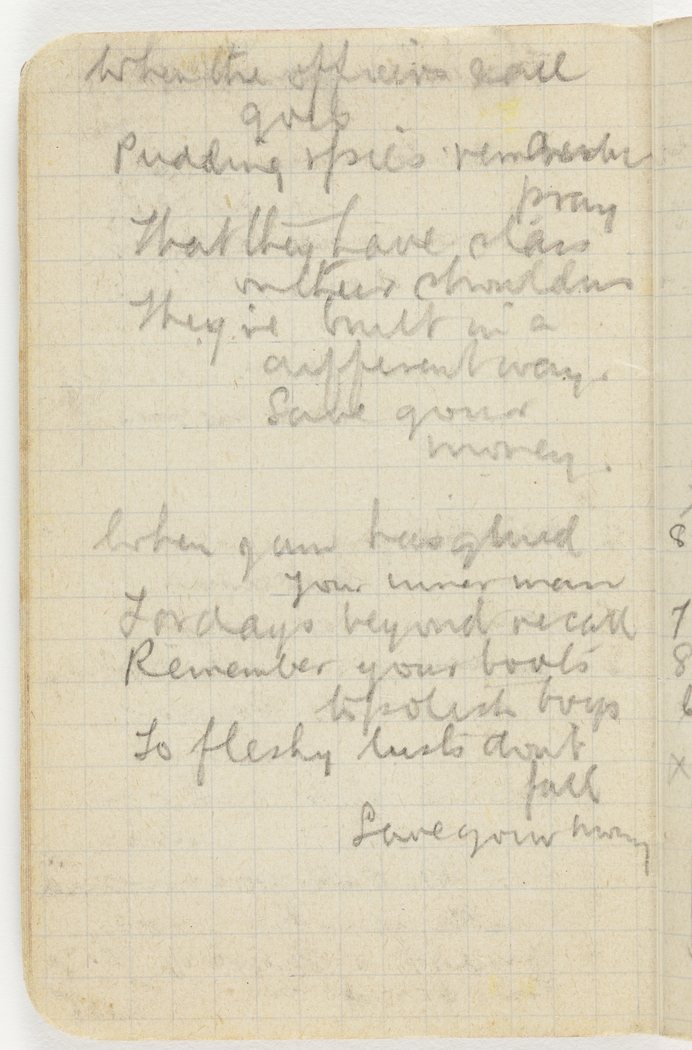 When the officers call
goes
Pudding & pies remember
pray
That they have stars
on their shoulders
They're built in a
different way.
Save your
money.
When jam has glued
your inner man
For days beyond recall
Remember your boots
to polish boys
To fleshy lusts dont
fall
Save your money